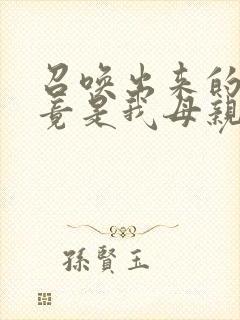 召唤出来的
竟是我母親
孫賢玉